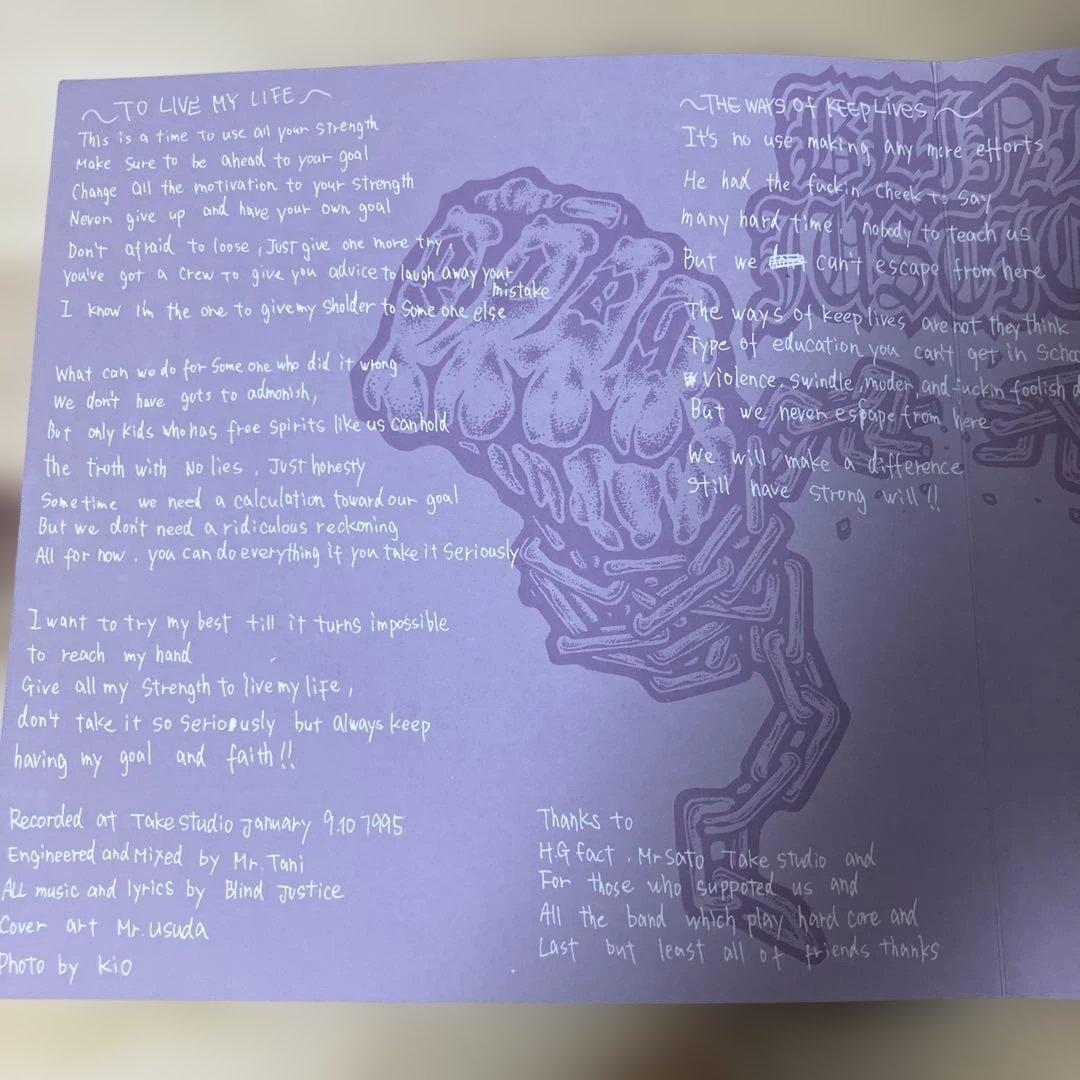 ~TO LIVE MY LIFE~
This is a time to use all your strength
Make sure to be ahead to your goal
Change all the motivation to your strength
Never give up and have your own goal
Don't afraid to loose, Just give one more try,
You've got a crew to give you advice to laugh away your
mistake
I know I'm the one to give my sholder to some one else
What can we do for some one who did it wrong
We don't have guts to admonish,
But only kids who has free spirits like us can hold
the truth with no lies, Just honesty
Sometime we need a calculation toward our goal
But we don't need a ridiculous reckoning
All for now, you can do everything if you take it seriously
I want to try my best till it turns impossible
to reach my hand
Give all my strength to live my life,
don't take it so seriously but always keep
having my goal and faith!!
Recorded at Take studio January 9.10 1995
Engineered and Mixed by Mr. Tani
ALL music and lyrics by Blind Justice
Cover art Mr. Usuda
Photo by Kio
~THE WAYS OF KEEP LIVES~
It's no use making any more efforts
He had the fuckin cheek to say
many hard time, nobody to teach us
But we can't escape from here
The ways of keep lives are not they think
Type of education you can't get in Schoo
violence, swindle, moder, and fuckin foolish d
But we never espape from here
We will make a difference
Still have strong will!!
Thanks to
H.G fact, Mr Sato Take studio and
For those who suppoted us and
All the band which play hard core and
Last but least all of friends thanks
BLIND
JUSTICE